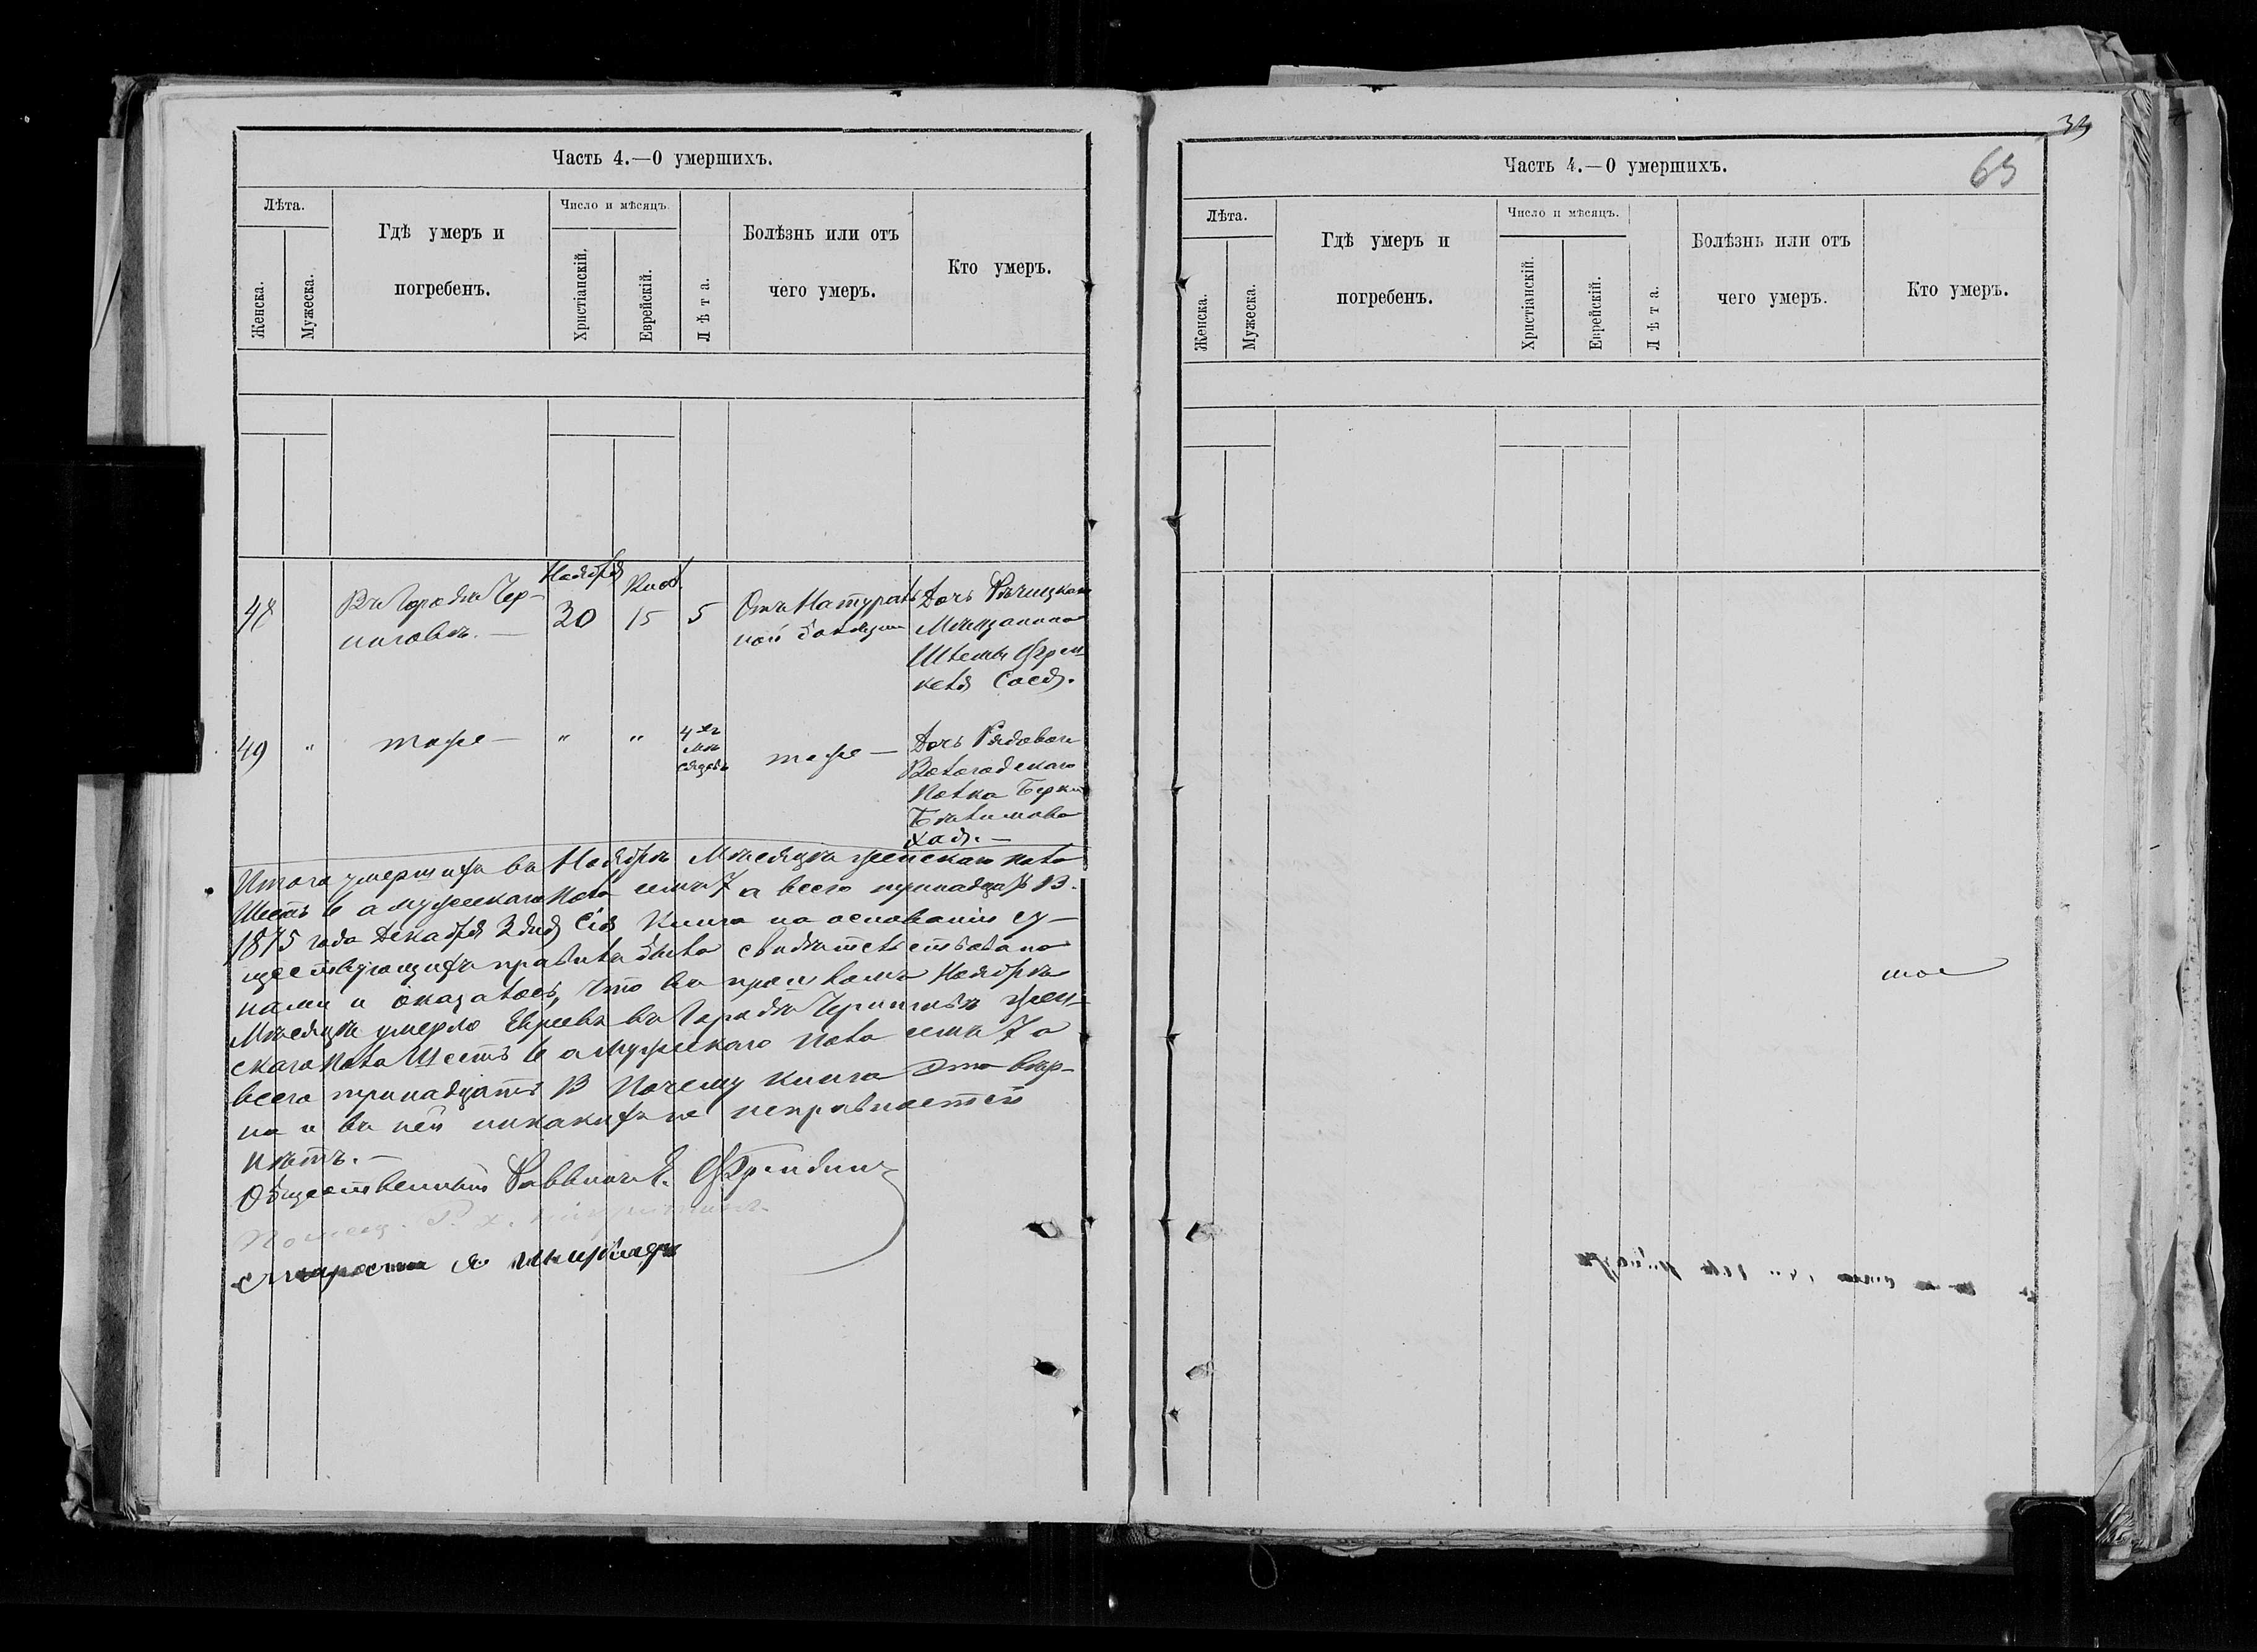 Часть 4.—О умершихъ.
Лѣта.
Женска.
Мужеска.
Гдѣ умеръ и
погребенъ.
Число и мѣсяцъ.
Христіанскій.
Еврейскій.
Лѣта.
Болѣзнь или отъ
чего умеръ.
Кто умеръ.
48
Въ Городѣ Чер-
ниговѣ. —
Ноября
30
Кисл.
15
5
Отъ Натураль
ной болѣзни
Дочь Рѣчицкаго
Мѣщанина
Шлемы Френ
келя Сося.
49
"
тоже —
"
"
4 хъ
мѣ
сяцовъ
тоже —
Дочь Рядового
Вологодскаго
Полка Берки
Хая. —
Итого умершихъ въ Ноябрѣ Мѣсяцѣ женскаго пола
Шесть 6 а мужескаго пола семь 7 а всего тринадцать 13.
1875 года Декабря 3 дня Сія Книга на основаніи су-
ществующихъ правилъ была свидѣтельствована
нами и оказалось, что въ прошломъ Ноябрѣ
Мѣсяцѣ умерло Евреевъ въ Городѣ Черниговѣ жен-
скаго пола Шесть 6 а мужескаго пола семь 7 а
всего тринадцать 13 Почему книга эта вѣр-
на и въ ней никакихъ не исправностей
нѣтъ. —
Общественный Раввинъ
Староста
39
65
Часть 4.—О умершихъ.
Лѣта.
Женска.
Мужеска.
Гдѣ умеръ и
погребенъ.
Число и мѣсяцъ.
Христіанскій.
Еврейскій.
Лѣта.
Болѣзнь или отъ
чего умеръ.
Кто умеръ.